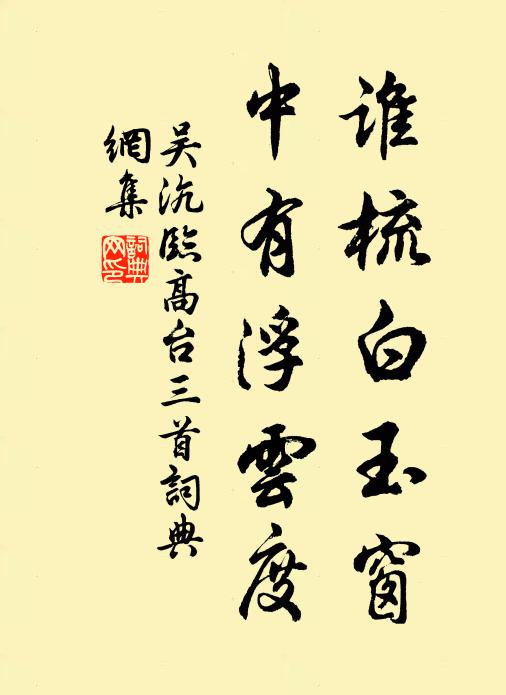 誰梳白玉窗
中有浮雲度
吴沆臨高台三首詞典
網集
詞典
网印